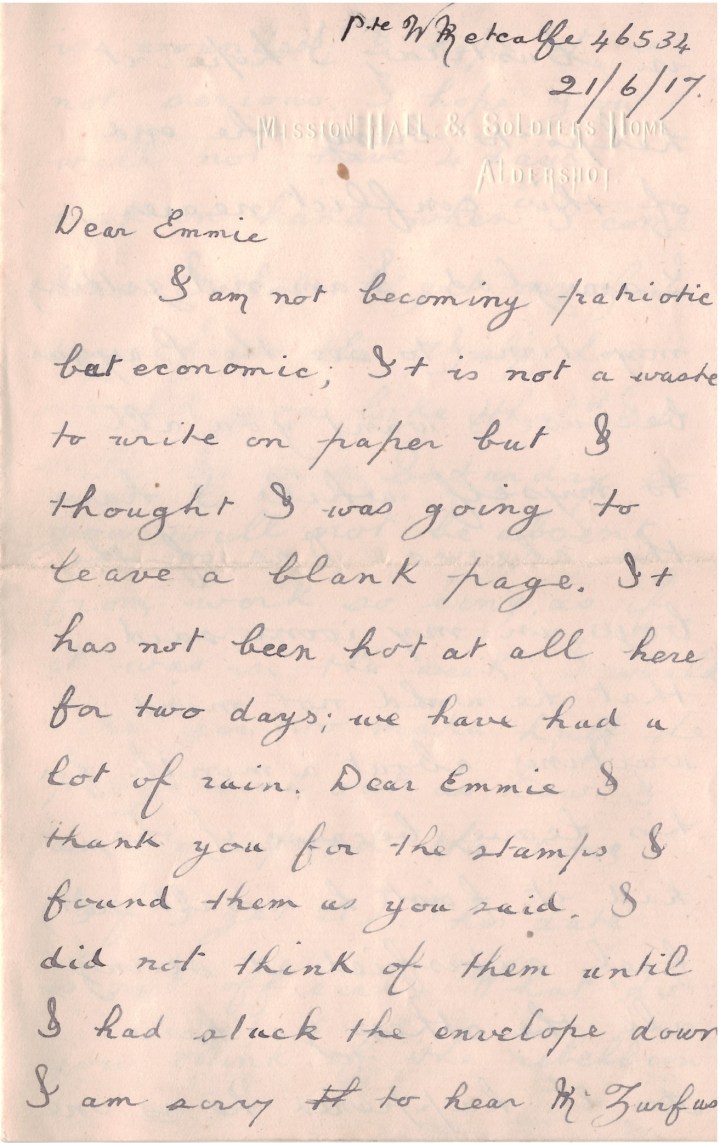 Pte W Metcalfe 46534
21/6/17.
MISSION HALL & SOLDIERS HOME
ALDERSHOT
Dear Emmie
I am not becoming patriotic
but economic; It is not a waste
to write on paper but I
thought I was going to
leave a blank page. It
has not been hot at all here
for two days; we have had a
lot of rain. Dear Emmie I
thank you for the stamps I
found them as you said. I
did not think of them until
I had stuck the envelope down
I am sorry to hear Mr Zurfas